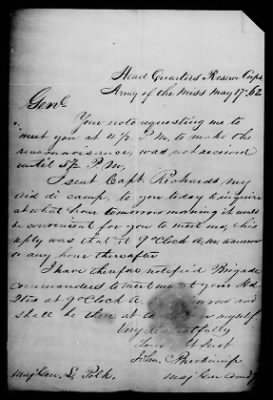 Head Quarters Reserve Corps
Army of the Miss May 17th 62
Genl
Your note requesting me to
meet you at 4 1/2 P.M. to make the
reconnoissance, was not received
until 5 1/2 P.M.
I sent Capt Richards my
aid di camp, to you today to inquire
at what hour tomorrow morning it would
be convenient for you to meet me, this
reply was that at 9 oClock A.M.
or any hour thereafter
I have therefore notified Brigade
commanders to meet me at your Hd
Qrs at 9 oClock A.
shall be there at myself.
Very Respectfully
Your Obt Svt
Jno. C. Breckinridge
Maj Gen. L. Polk. Maj Gen Comdg